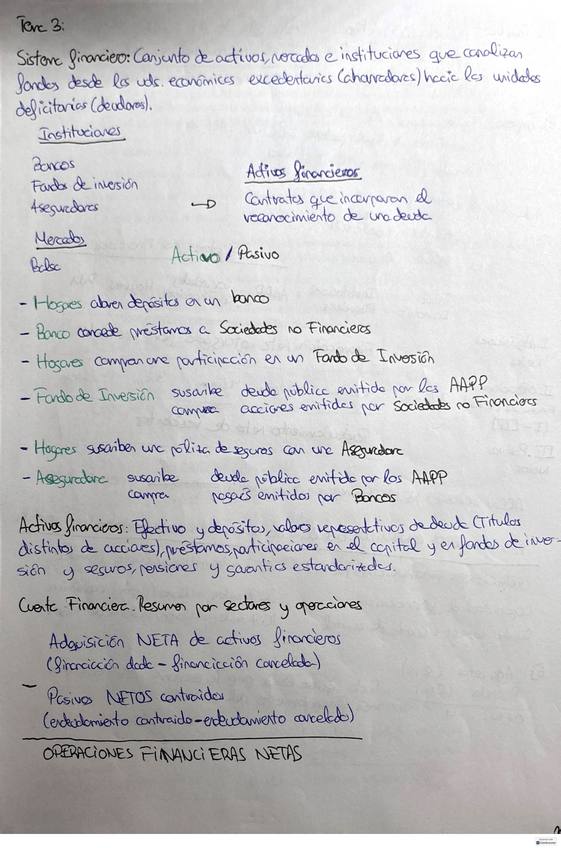 Tema 3:
Sistema financiero: Conjunto de activos, mercados e instituciones que canalizan
fondos desde las uds. económicas excedentarias (ahorradores) hacia las unidades
deficitarias (deudoras).
Instituciones
Bancos
Fondos de inversión
Aseguradoras
Activos financieros
Contratos que incorporan el
reconocimiento de una deuda
Mercados
Bolsa
Activo / Pasivo
- Hogares abren depósitos en un banco
- Banco concede préstamos a Sociedades no Financieras
- Hogares compran una participación en un Fondo de Inversión
- Fondo de Inversión suscribe deuda pública emitida por las AAPP
compra acciones emitidas por Sociedades no Financieras
- Hogares suscriben una póliza de seguros con una Aseguradora
- Aseguradora suscribe deuda pública emitida por las AAPP
compra pagarés emitidos por Bancos
Activos financieros: Efectivo y depósitos, valores representativos de deuda (Títulos
distintos de acciones), préstamos, participaciones en el capital y en fondos de inver-
sión y seguros, pensiones y garantías estandarizadas.
Cuenta Financiera. Resumen por sectores y operaciones
Adquisición NETA de activos financieros
(financiación dada - financiación cancelada)
- Pasivos NETOS contraidos
(endeudamiento contraido - endeudamiento cancelado)
OPERACIONES FINANCIERAS NETAS